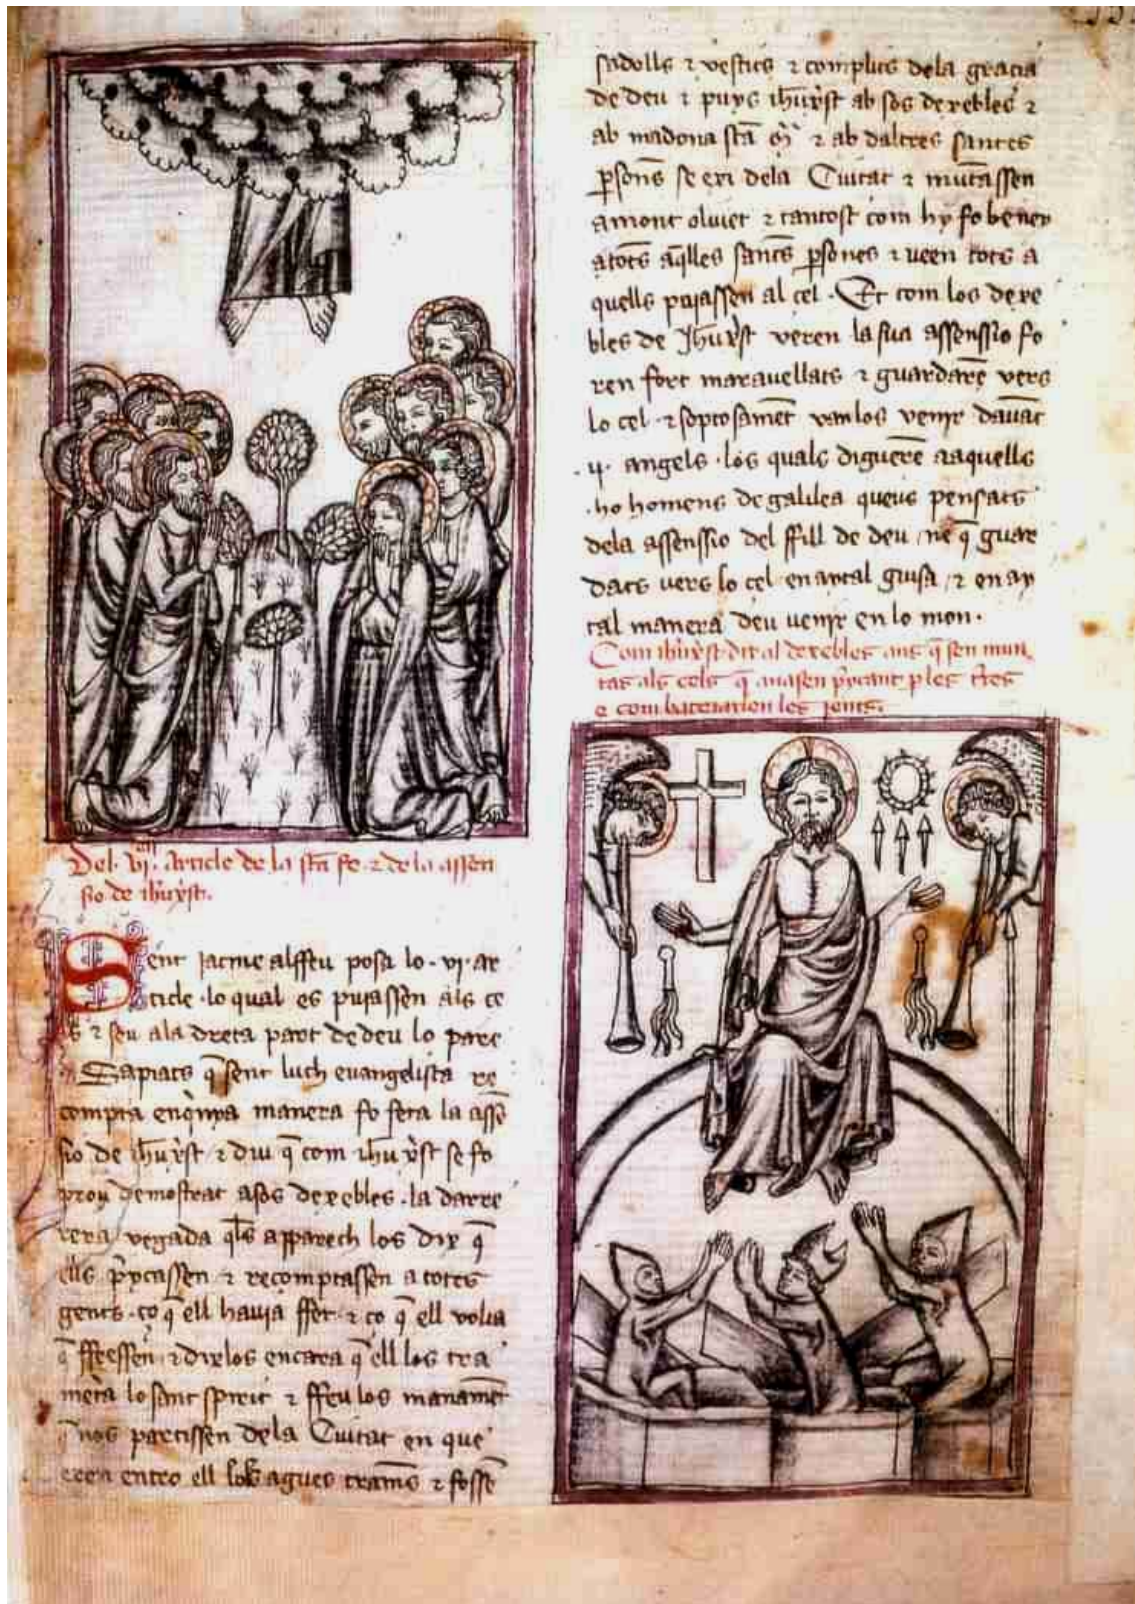 Del · vi · Article de la sta fe · ⁊ de la assen
sio de ihu xpst.
Sent Jacme alffeu posa lo · vi · ar
ticle · lo qual es pujassen als ce
ls ⁊ seu ala dreta part de deu lo pare
Sapiats q̄ sent luch evangelista re
compta en q̄nya manera fo feta la assē
sio de ihu xpst ⁊ diu q̄ com ihu xpst se fo
prou demostrat asos dexebles · la darre
rera vegada q̄ls apparech los dix q̄
ells p̄ycassen ⁊ recomptassen a totes
gents · ço q̄ ell havia ffet · ⁊ ço q̄ ell volia
q̄ ffessen · ⁊ dixlos encara q̄ ell los tra
metra lo sant spirit ⁊ ffeu los manamēt
nos partissen dela Ciutat en que
eren entro ell los agues trames ⁊ fossē
sadolls ⁊ vestits ⁊ complits dela gracia
de deu ⁊ puys ihu xpst ab sos dexebles ⁊
ab madona sta m̄ ⁊ ab daltres santes
p̄sones se exi dela Ciutat ⁊ muntassen
amont oliuet ⁊ tantost com hy fo beney
atots aq̄lles santes p̄sones ⁊ veen tots a
quells pujassen al cel · Et com los dexe
bles de Jhu xpst veren la sua assenssio fo
ren fort maravellats ⁊ guardarē vers
lo cel · ⁊ soptosamēt van los venir davāt
· ij · angels · los quals diguerē aaquells
· ho homens de galilea queus pensats
dela assenssio del ffill de deu ne q̄ guar
dats vers lo cel en aytal guisa / ⁊ en ay
tal manera deu venir en lo mon ·
Com ihu xpst dix al dexebles ans q̄ sen mun
tas als cels q̄ anasen p̄ycant p les t̄res
e com bateiarien les jents.